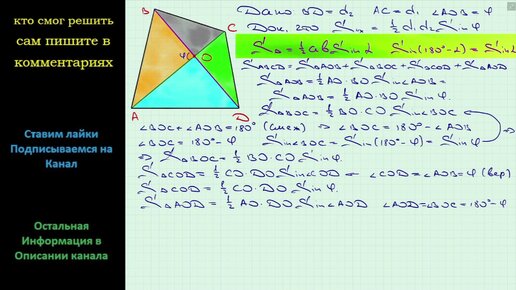 кто смог решить
сам пишите в
комментариях
Ставим лайки
Подписываемся на
Канал
Остальная
Информация в
Описании канала
B
C
φ
O
A
D
Дано BD = d₂ AC = d₁ ∠AOB = φ
Док. что S = ½ d₁d₂ Sin φ
S△ = ½ ab Sin α Sin(180° - α) = Sin α
SABCD = S△AOB + S△BOC + S△COD + S△AOD
S△AOB = ½ AO · BO Sin∠AOB =
S△AOB = ½ AO · BO Sin φ.
S△BOC = ½ BO · CO Sin∠BOC
∠BOC + ∠AOB = 180° (смеж) ⇒ ∠BOC = 180° - ∠AOB
∠BOC = 180° - φ Sin∠BOC = Sin(180° - φ) = Sin φ
⇒ S△BOC = ½ BO · CO Sin φ.
S△COD = ½ CO · DO Sin∠COD = ∠COD = ∠AOB = φ (вер)
S△COD = ½ CO · DO Sin φ.
S△AOD = ½ AO · DO Sin∠AOD ∠AOD = ∠BOC = 180° - φ